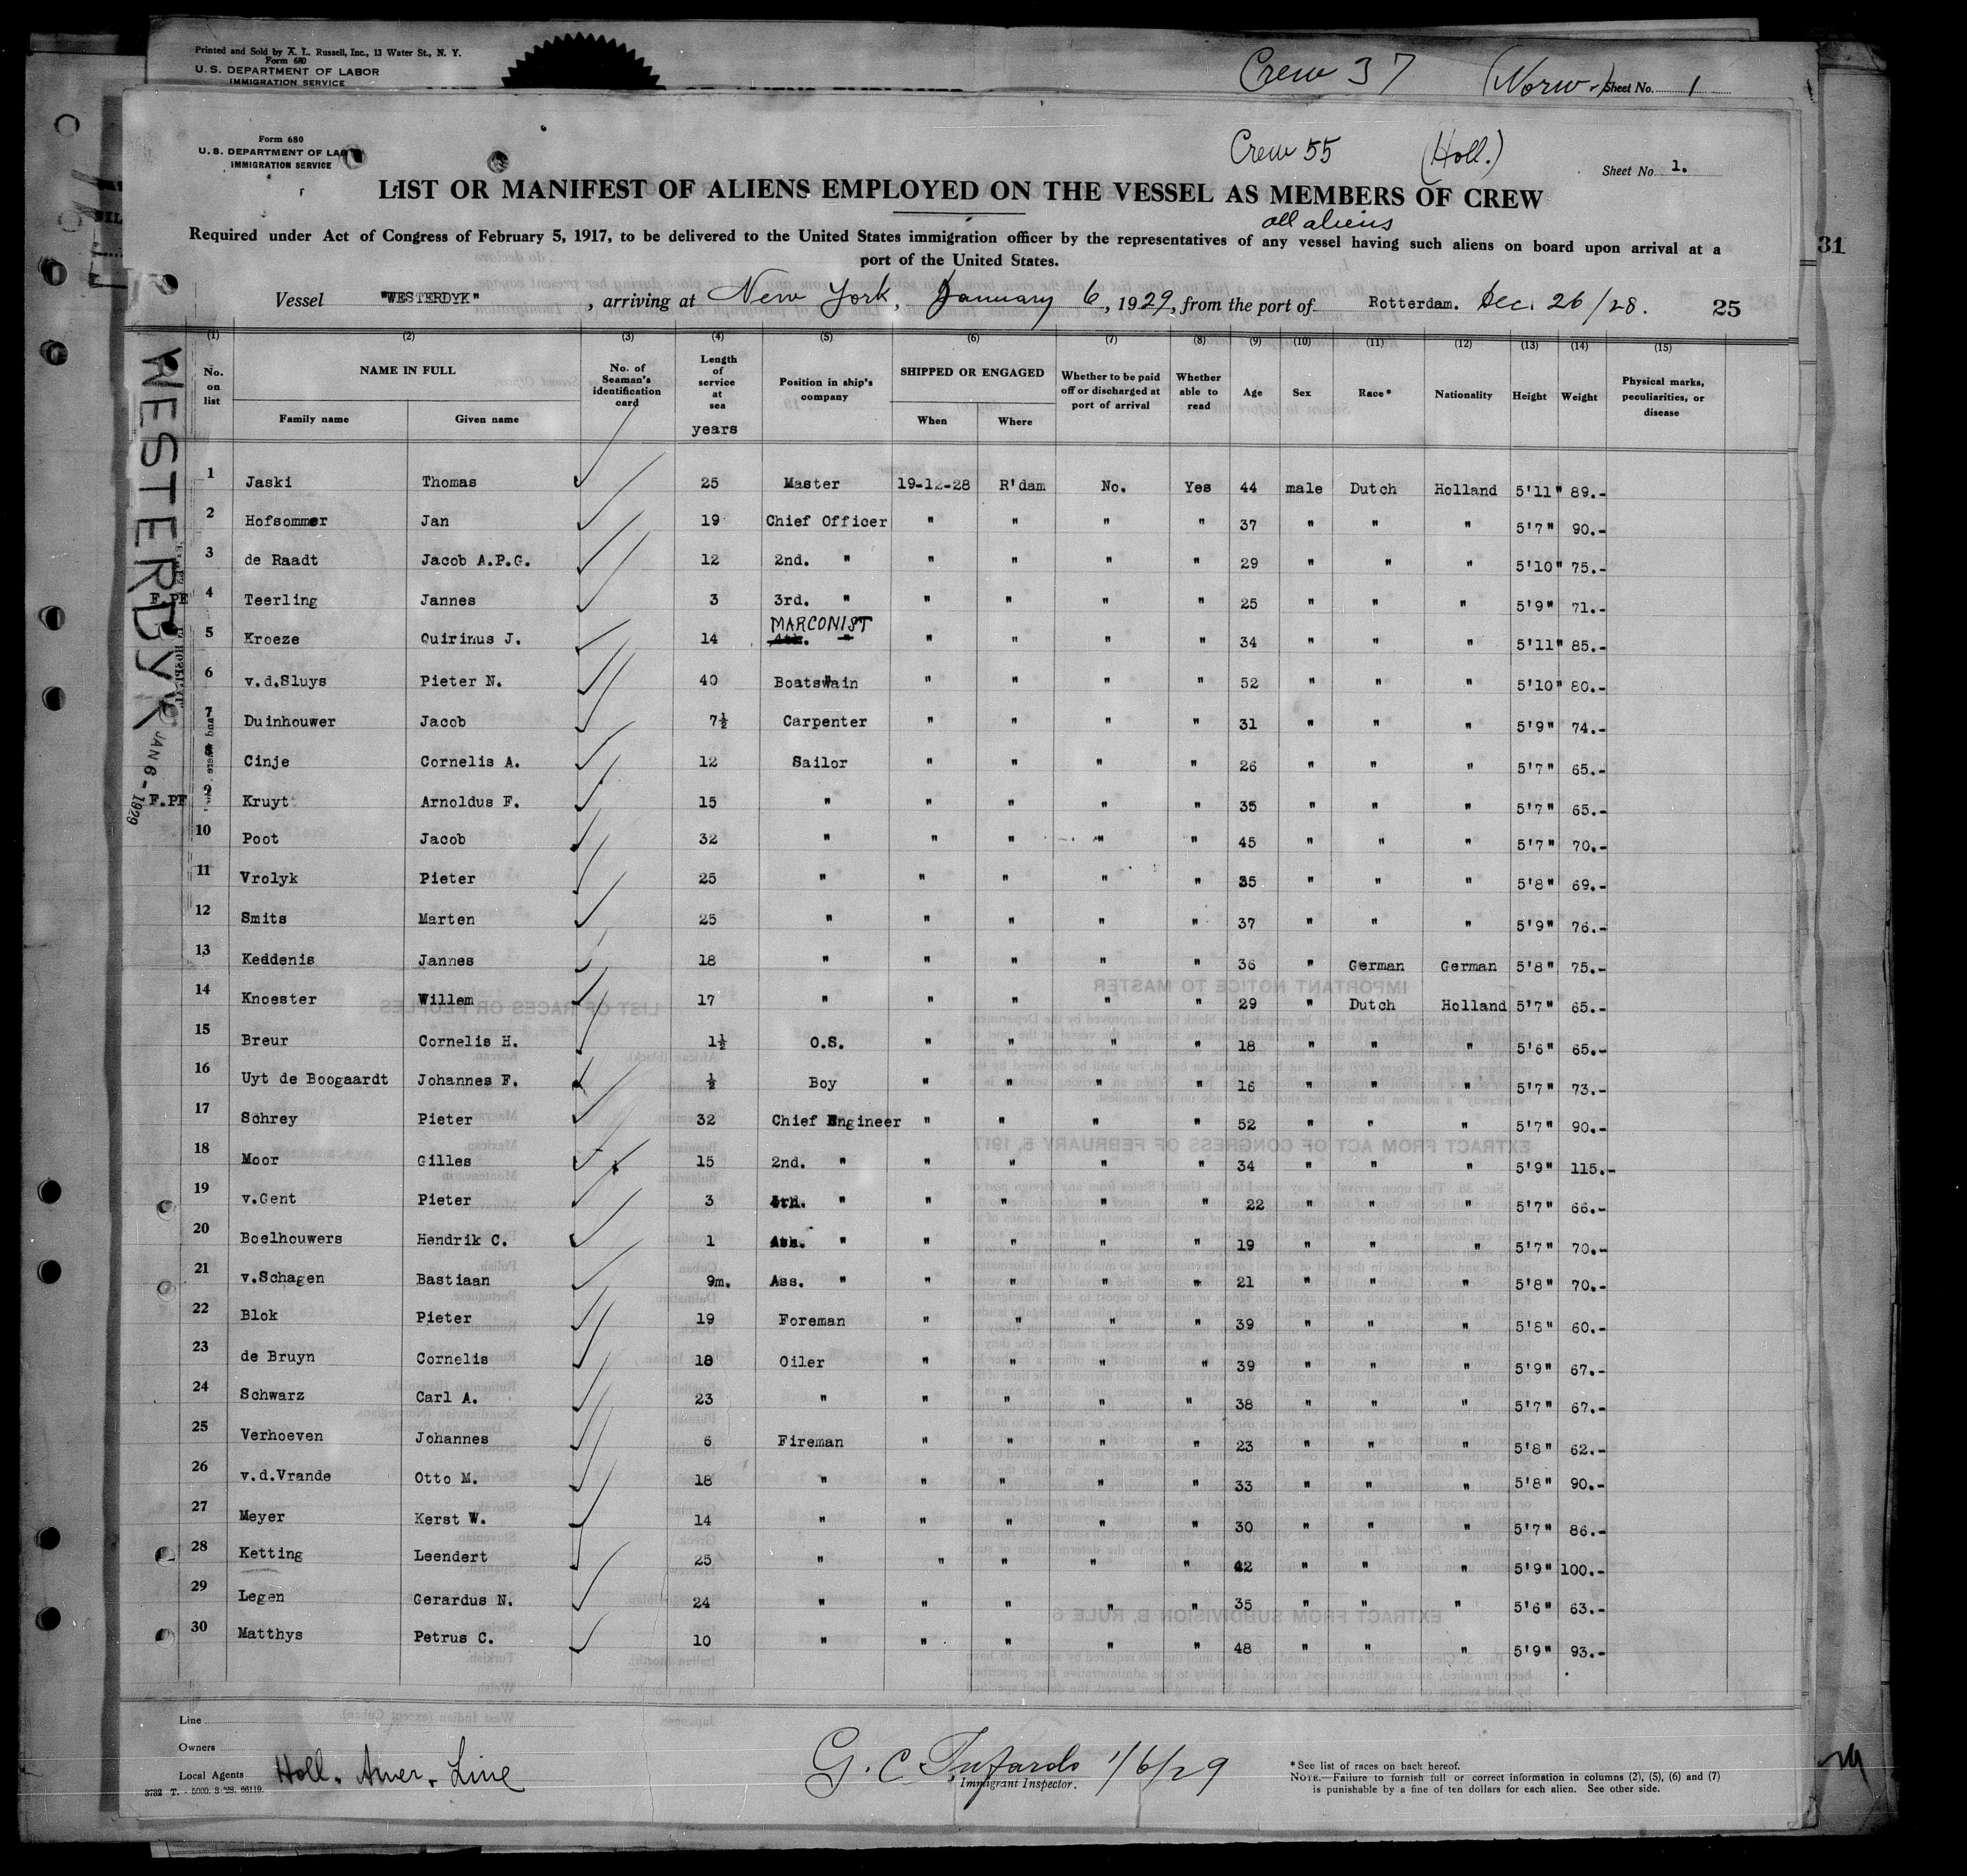 Printed and Sold by A. L. Russell, Inc., 13 Water St., N. Y.
Form 680
U. S. DEPARTMENT OF LABOR
IMMIGRATION SERVICE
Crew 37 (Norw.) Sheet No. 1
Form 680
U. S. DEPARTMENT OF LAB
IMMIGRATION SERVICE
Crew 55 (Holl.)
Sheet No. 1.
LIST OR MANIFEST OF ALIENS EMPLOYED ON THE VESSEL AS MEMBERS OF CREW
all aliens
Required under Act of Congress of February 5, 1917, to be delivered to the United States immigration officer by the representatives of any vessel having such aliens on board upon arrival at a
port of the United States.
31
Vessel "WESTERDYK", arriving at New York, January 6, 1929, from the port of Rotterdam. Dec. 26/28. 25
(1) (2) (3) (4) (5) (6) (7) (8) (9) (10) (11) (12) (13) (14) (15)
No. on list NAME IN FULL Family name Given name No. of Seaman's identification card Length of service at sea years Position in ship's company SHIPPED OR ENGAGED When Where Whether to be paid off or discharged at port of arrival Whether able to read Age Sex Race* Nationality Height Weight Physical marks, peculiarities, or disease
WESTERDYK
JAN 6 - 1929
1 Jaski Thomas 25 Master 19-12-28 R'dam No. Yes 44 male Dutch Holland 5'11" 89.-
2 Hofsommer Jan 19 Chief Officer " " " " 37 " " " 5'7" 90.-
3 de Raadt Jacob A.P.G. 12 2nd. " " " " " 29 " " " 5'10" 75.-
F.PE 4 Teerling Jannes 3 3rd. " " " " " 25 " " " 5'9" 71.-
MARCONIST
5 Kroeze Quirinus J. 14 4th. " " " " " 34 " " " 5'11" 85.-
6 v.d.Sluys Pieter N. 40 Boatswain " " " " 52 " " " 5'10" 80.-
7 Duinhouwer Jacob 7½ Carpenter " " " " 31 " " " 5'9" 74.-
8 Cinje Cornelis A. 12 Sailor " " " " 26 " " " 5'7" 65.-
F.PE 9 Kruyt Arnoldus F. 15 " " " " " 35 " " " 5'7" 65.-
10 Poot Jacob 32 " " " " " 45 " " " 5'7" 70.-
11 Vrolyk Pieter 25 " " " " " 35 " " " 5'8" 69.-
12 Smits Marten 25 " " " " " 37 " " " 5'9" 76.-
13 Keddenis Jannes 18 " " " " " 36 " German German 5'8" 75.-
14 Knoester Willem 17 " " " " " 29 " Dutch Holland 5'7" 65.-
15 Breur Cornelis H. 1½ O.S. " " " " 18 " " " 5'6" 65.-
16 Uyt de Boogaardt Johannes F. ½ Boy " " " " 16 " " " 5'7" 73.-
17 Schrey Pieter 32 Chief Engineer " " " " 52 " " " 5'7" 90.-
18 Moor Gilles 15 2nd. " " " " " 34 " " " 5'9" 115.-
19 v.Gent Pieter 3 " " " " " 22 " " " 5'7" 66.-
20 Boelhouwers Hendrik C. 1 " " " " " 19 " " " 5'7" 70.-
21 v.Schagen Bastiaan 9m. Ass. " " " " " 21 " " " 5'8" 70.-
22 Blok Pieter 19 Foreman " " " " 39 " " " 5'8" 60.-
23 de Bruyn Cornelis 18 Oiler " " " " 39 " " " 5'9" 67.-
24 Schwarz Carl A. 23 " " " " " 38 " " " 5'7" 67.-
25 Verhoeven Johannes 6 Fireman " " " " 23 " " " 5'8" 62.-
26 v.d.Vrande Otto M. 18 " " " " " 33 " " " 5'8" 90.-
27 Meyer Kerst W. 14 " " " " " 30 " " " 5'7" 86.-
28 Ketting Leendert 25 " " " " " 42 " " " 5'9" 100.-
29 Legen Gerardus N. 24 " " " " " 35 " " " 5'6" 63.-
30 Matthys Petrus C. 10 " " " " " 48 " " " 5'9" 93.-
Line
Owners
Local Agents Holl. Amer. Line
3782 T. - 5000. 3 '28. 66119.
G. C. Tufardo 1/6/29
Immigrant Inspector.
* See list of races on back hereof.
NOTE.—Failure to furnish full or correct information in columns (2), (5), (6) and (7)
is punishable by a fine of ten dollars for each alien. See other side.